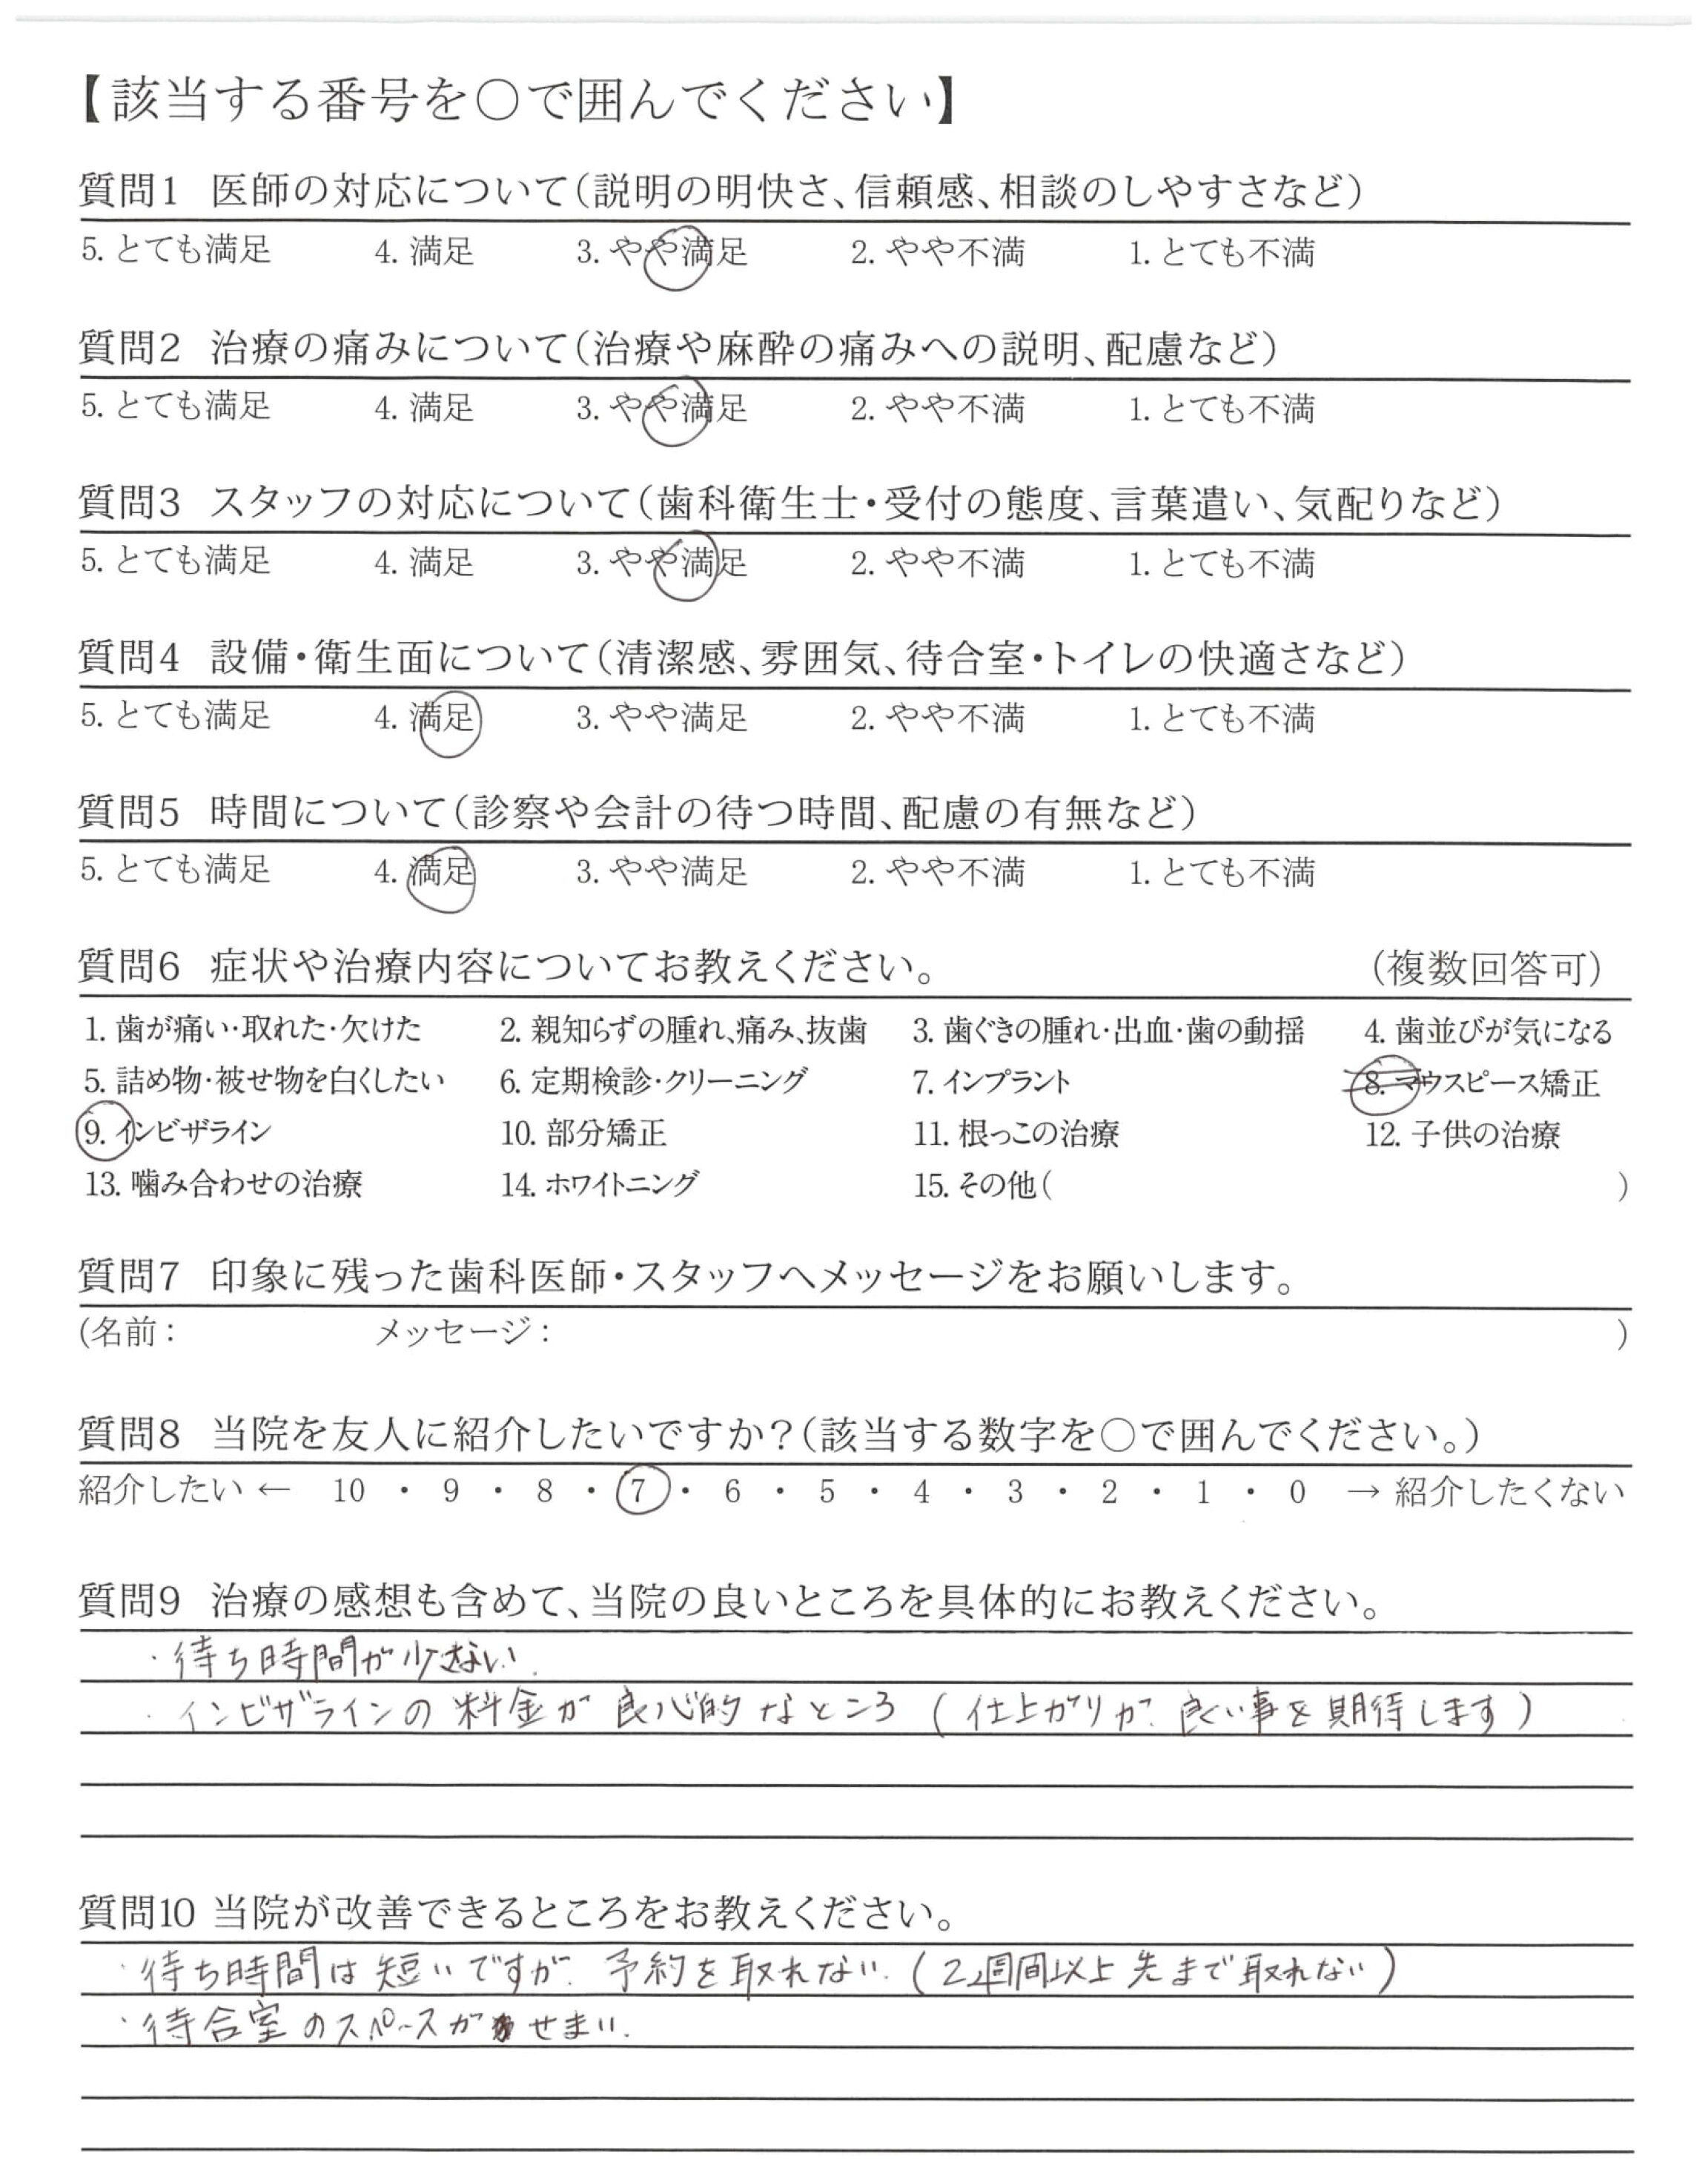 【該当する番号を○で囲んでください】
質問1 医師の対応について(説明の明快さ、信頼感、相談のしやすさなど)
5. とても満足 4. 満足 3. やや満足 2. やや不満 1. とても不満
質問2 治療の痛みについて(治療や麻酔の痛みへの説明、配慮など)
5. とても満足 4. 満足 3. やや満足 2. やや不満 1. とても不満
質問3 スタッフの対応について(歯科衛生士・受付の態度、言葉遣い、気配りなど)
5. とても満足 4. 満足 3. やや満足 2. やや不満 1. とても不満
質問4 設備・衛生面について(清潔感、雰囲気、待合室・トイレの快適さなど)
5. とても満足 4. 満足 3. やや満足 2. やや不満 1. とても不満
質問5 時間について(診察や会計の待つ時間、配慮の有無など)
5. とても満足 4. 満足 3. やや満足 2. やや不満 1. とても不満
質問6 症状や治療内容についてお教えください。 (複数回答可)
1. 歯が痛い・取れた・欠けた 2. 親知らずの腫れ、痛み、抜歯 3. 歯ぐきの腫れ・出血・歯の動揺 4. 歯並びが気になる
5. 詰め物・被せ物を白くしたい 6. 定期検診・クリーニング 7. インプラント 8. マウスピース矯正
9. インビザライン 10. 部分矯正 11. 根っこの治療 12. 子供の治療
13. 噛み合わせの治療 14. ホワイトニング 15. その他( )
質問7 印象に残った歯科医師・スタッフへメッセージをお願いします。
(名前: メッセージ: )
質問8 当院を友人に紹介したいですか?(該当する数字を○で囲んでください。)
紹介したい ← 10 ・ 9 ・ 8 ・ 7 ・ 6 ・ 5 ・ 4 ・ 3 ・ 2 ・ 1 ・ 0 → 紹介したくない
質問9 治療の感想も含めて、当院の良いところを具体的にお教えください。
・待ち時間が少ない.
・インビザラインの料金が良心的なところ(仕上がりが良い事を期待します)
質問10 当院が改善できるところをお教えください。
・待ち時間は短いですが、予約を取れない.(2週間以上先まで取れない)
・待合室のスペースがせまい.